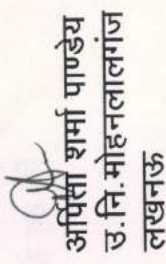 अर्पिता शर्मा पाण्डेय
उ.नि.मोहनलालगंज
लखनऊ